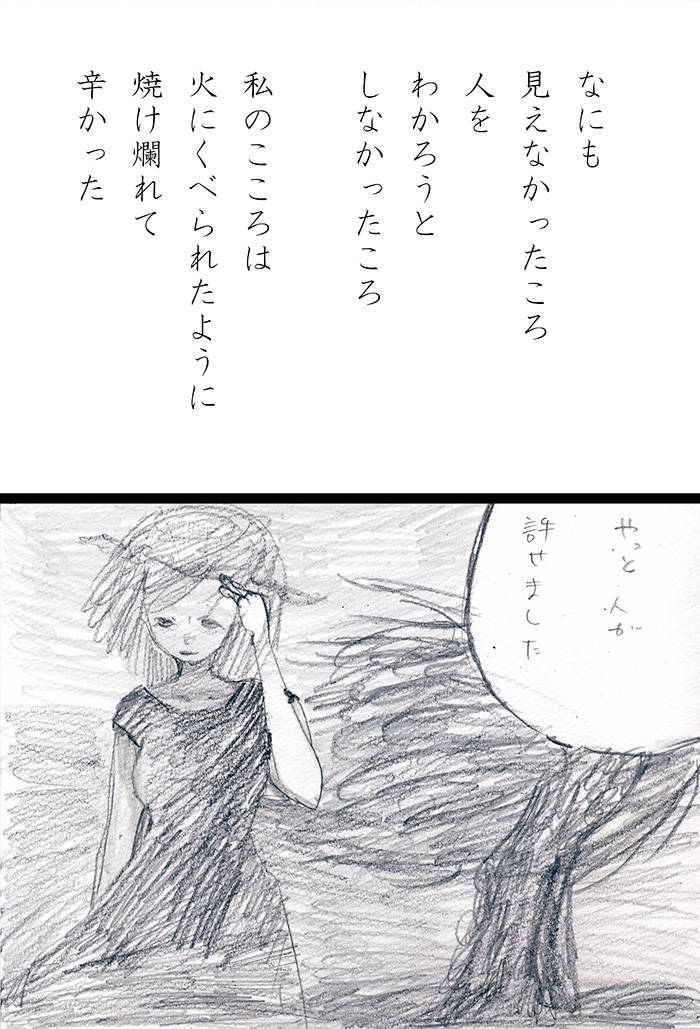 なにも
見えなかったころ
人を
わかろうと
しなかったころ
私のこころは
火にくべられたように
焼け爛れて
辛かった
やっと人が
許せました